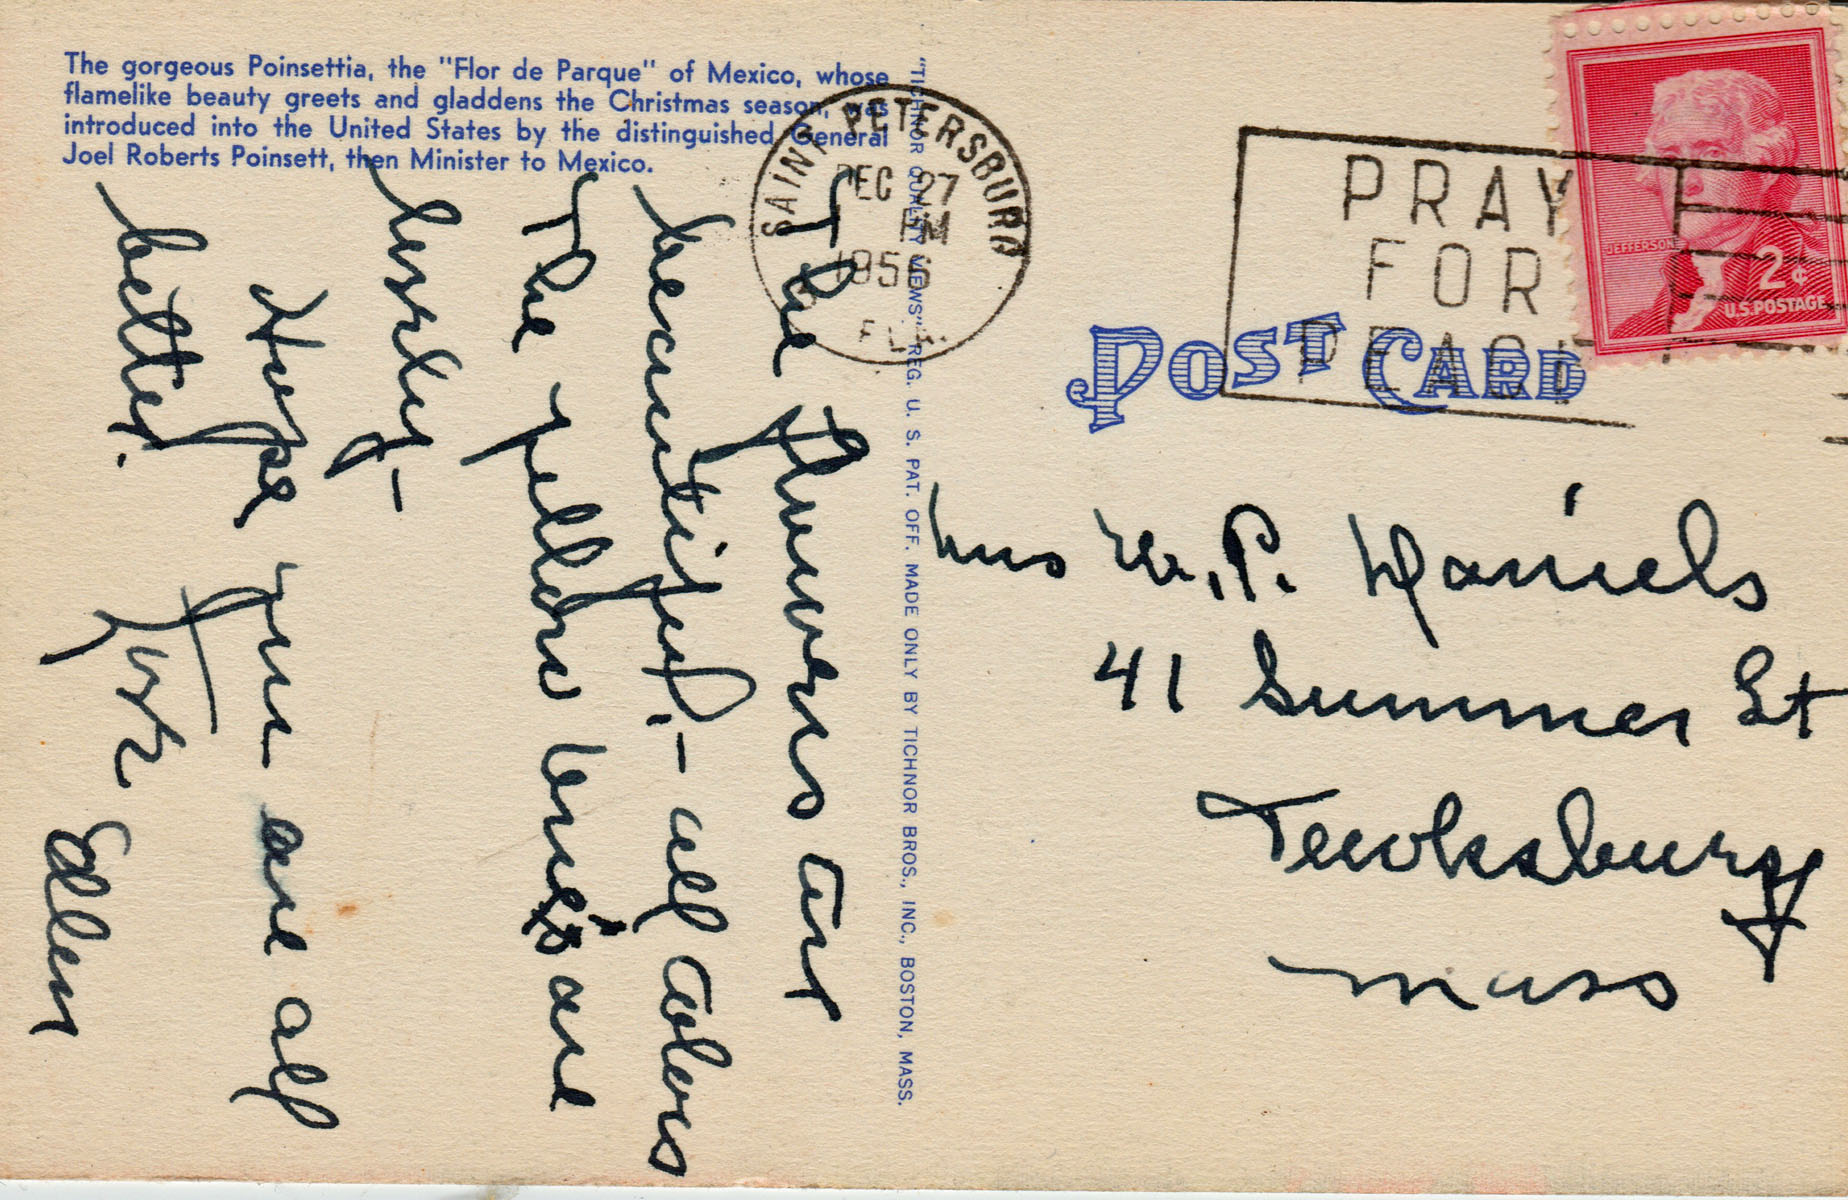 The gorgeous Poinsettia, the "Flor de Parque" of Mexico, whose
flamelike beauty greets and gladdens the Christmas season, was
introduced into the United States by the distinguished General
Joel Roberts Poinsett, then Minister to Mexico.
The flowers are
beautiful, - all colors
The yellow ones are
lovely -
Hope you are all
better.
Ellen
"TICHNOR QUALITY VIEWS" REG. U. S. PAT. OFF. MADE ONLY BY TICHNOR BROS., INC., BOSTON, MASS.
SAINT PETERSBURG
DEC 27
PM
1956
FLA.
PRAY
FOR
PEACE
JEFFERSON
2¢
U.S. POSTAGE
POST CARD
Mrs W. P. Daniels
41 Summer St
Tewksbury
Mass